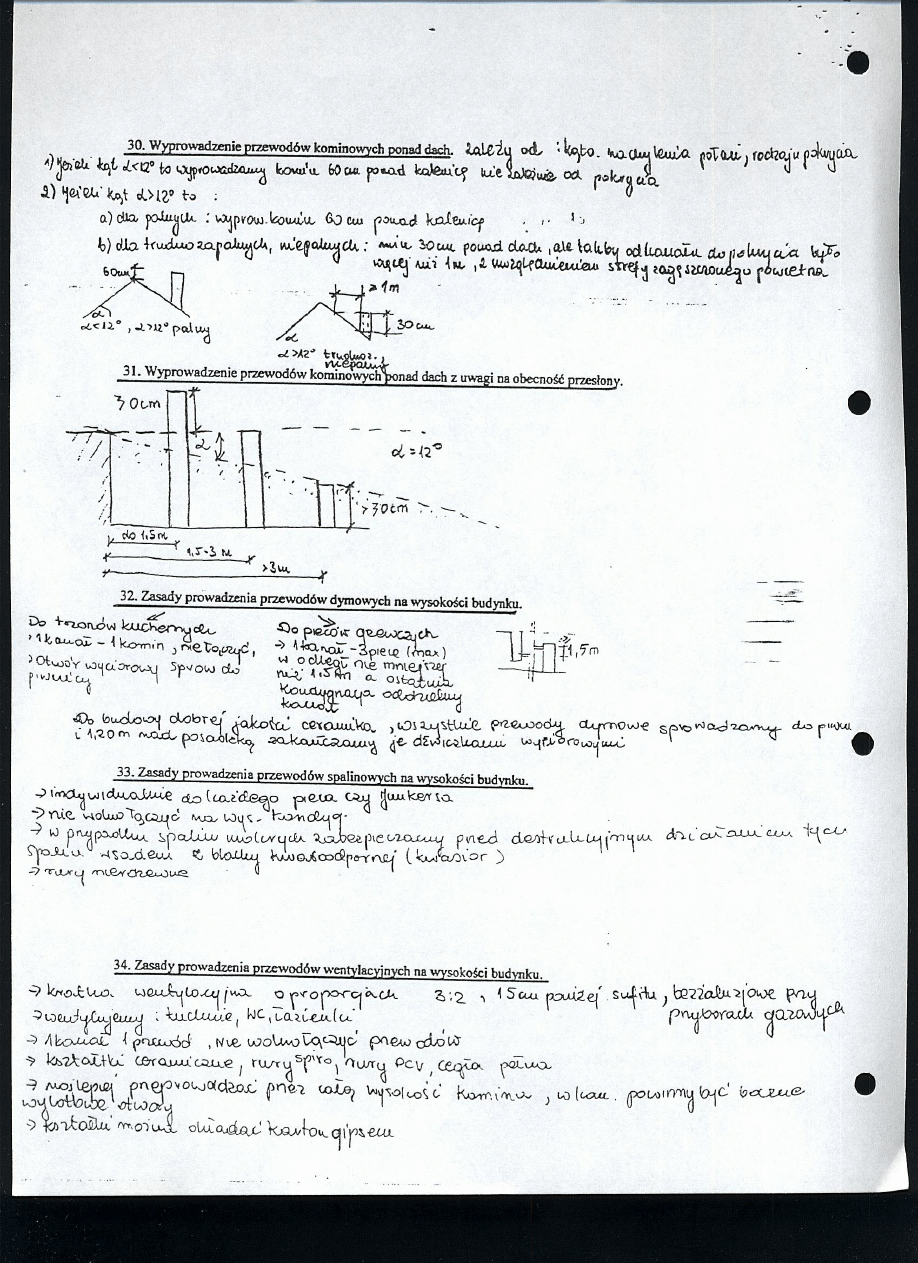 30. Wyprowadzenie przewodów kominowych ponad dach. zależy od : kąta nachylenia połaci, rodzaju pokrycia
1) Jeżeli kąt α<12° to wyprowadzamy komin 60 cm ponad kalenicę nie zależnie od pokrycia
2) Jeżeli kąt α>12° to :
a) dla palnych : wyprow. komin 60 cm ponad kalenicę
b) dla trudno zapalnych, niepalnych : min 30 cm ponad dach, ale tak by od kanału do pokrycia było
więcej niż 1m, z uwzględnieniem strefy zagęszczonego powietrza
60cm
≥ 1m
30 cm
α
α<12°, α>12° palny
α
α>12° trudnoz.,
niepalny
31. Wyprowadzenie przewodów kominowych ponad dach z uwagi na obecność przesłony.
30cm
α
α = 12°
>30cm
do 1,5m
1,5-3 m
>3m
32. Zasady prowadzenia przewodów dymowych na wysokości budynku.
Do trzonów kuchennych
1 kanał - 1 komin, nie łączyć,
Otwór wyciorowy sprow do
piwnicy
Do pieców grzewczych
→ 1 kanał - 3 piece (max)
w odległ nie mniejszej
niż 1,5m a ostatnia
kondygnacja oddzielny
kanał
1,5m
Do budowy dobrej jakości ceramika, wszystkie przewody dymowe sprowadzamy do piwn
i 1,20m nad posadzką zakańczamy je drzwiczkami wyciorowymi
33. Zasady prowadzenia przewodów spalinowych na wysokości budynku.
→ indywidualnie do każdego pieca czy Junkersa
→ nie wolno łączyć na wys. kondyg.
→ w przypadku spalin mokrych zabezpieczamy przed destrukcyjnym działaniem tych
spalin wsadem z blachy kwasoodpornej (kwasior)
→ rury nierdzewne
34. Zasady prowadzenia przewodów wentylacyjnych na wysokości budynku.
→ kratka wentylacyjna o proporcjach 3:2, 15cm poniżej sufitu, bezżaluzjowe przy
przyborach gazowych
→ wentylujemy : kuchnie, WC, łazienki
→ 1 kanał 1 przewód, nie wolno łączyć przewodów
→ kształtki ceramiczne, rury spiro, rury PCV, cegła pełna
→ najlepiej przeprowadzać przez całą wysokość komina, w kan. powinny być boczne
wylotowe otwory
→ kształtki można okładać karton gipsem